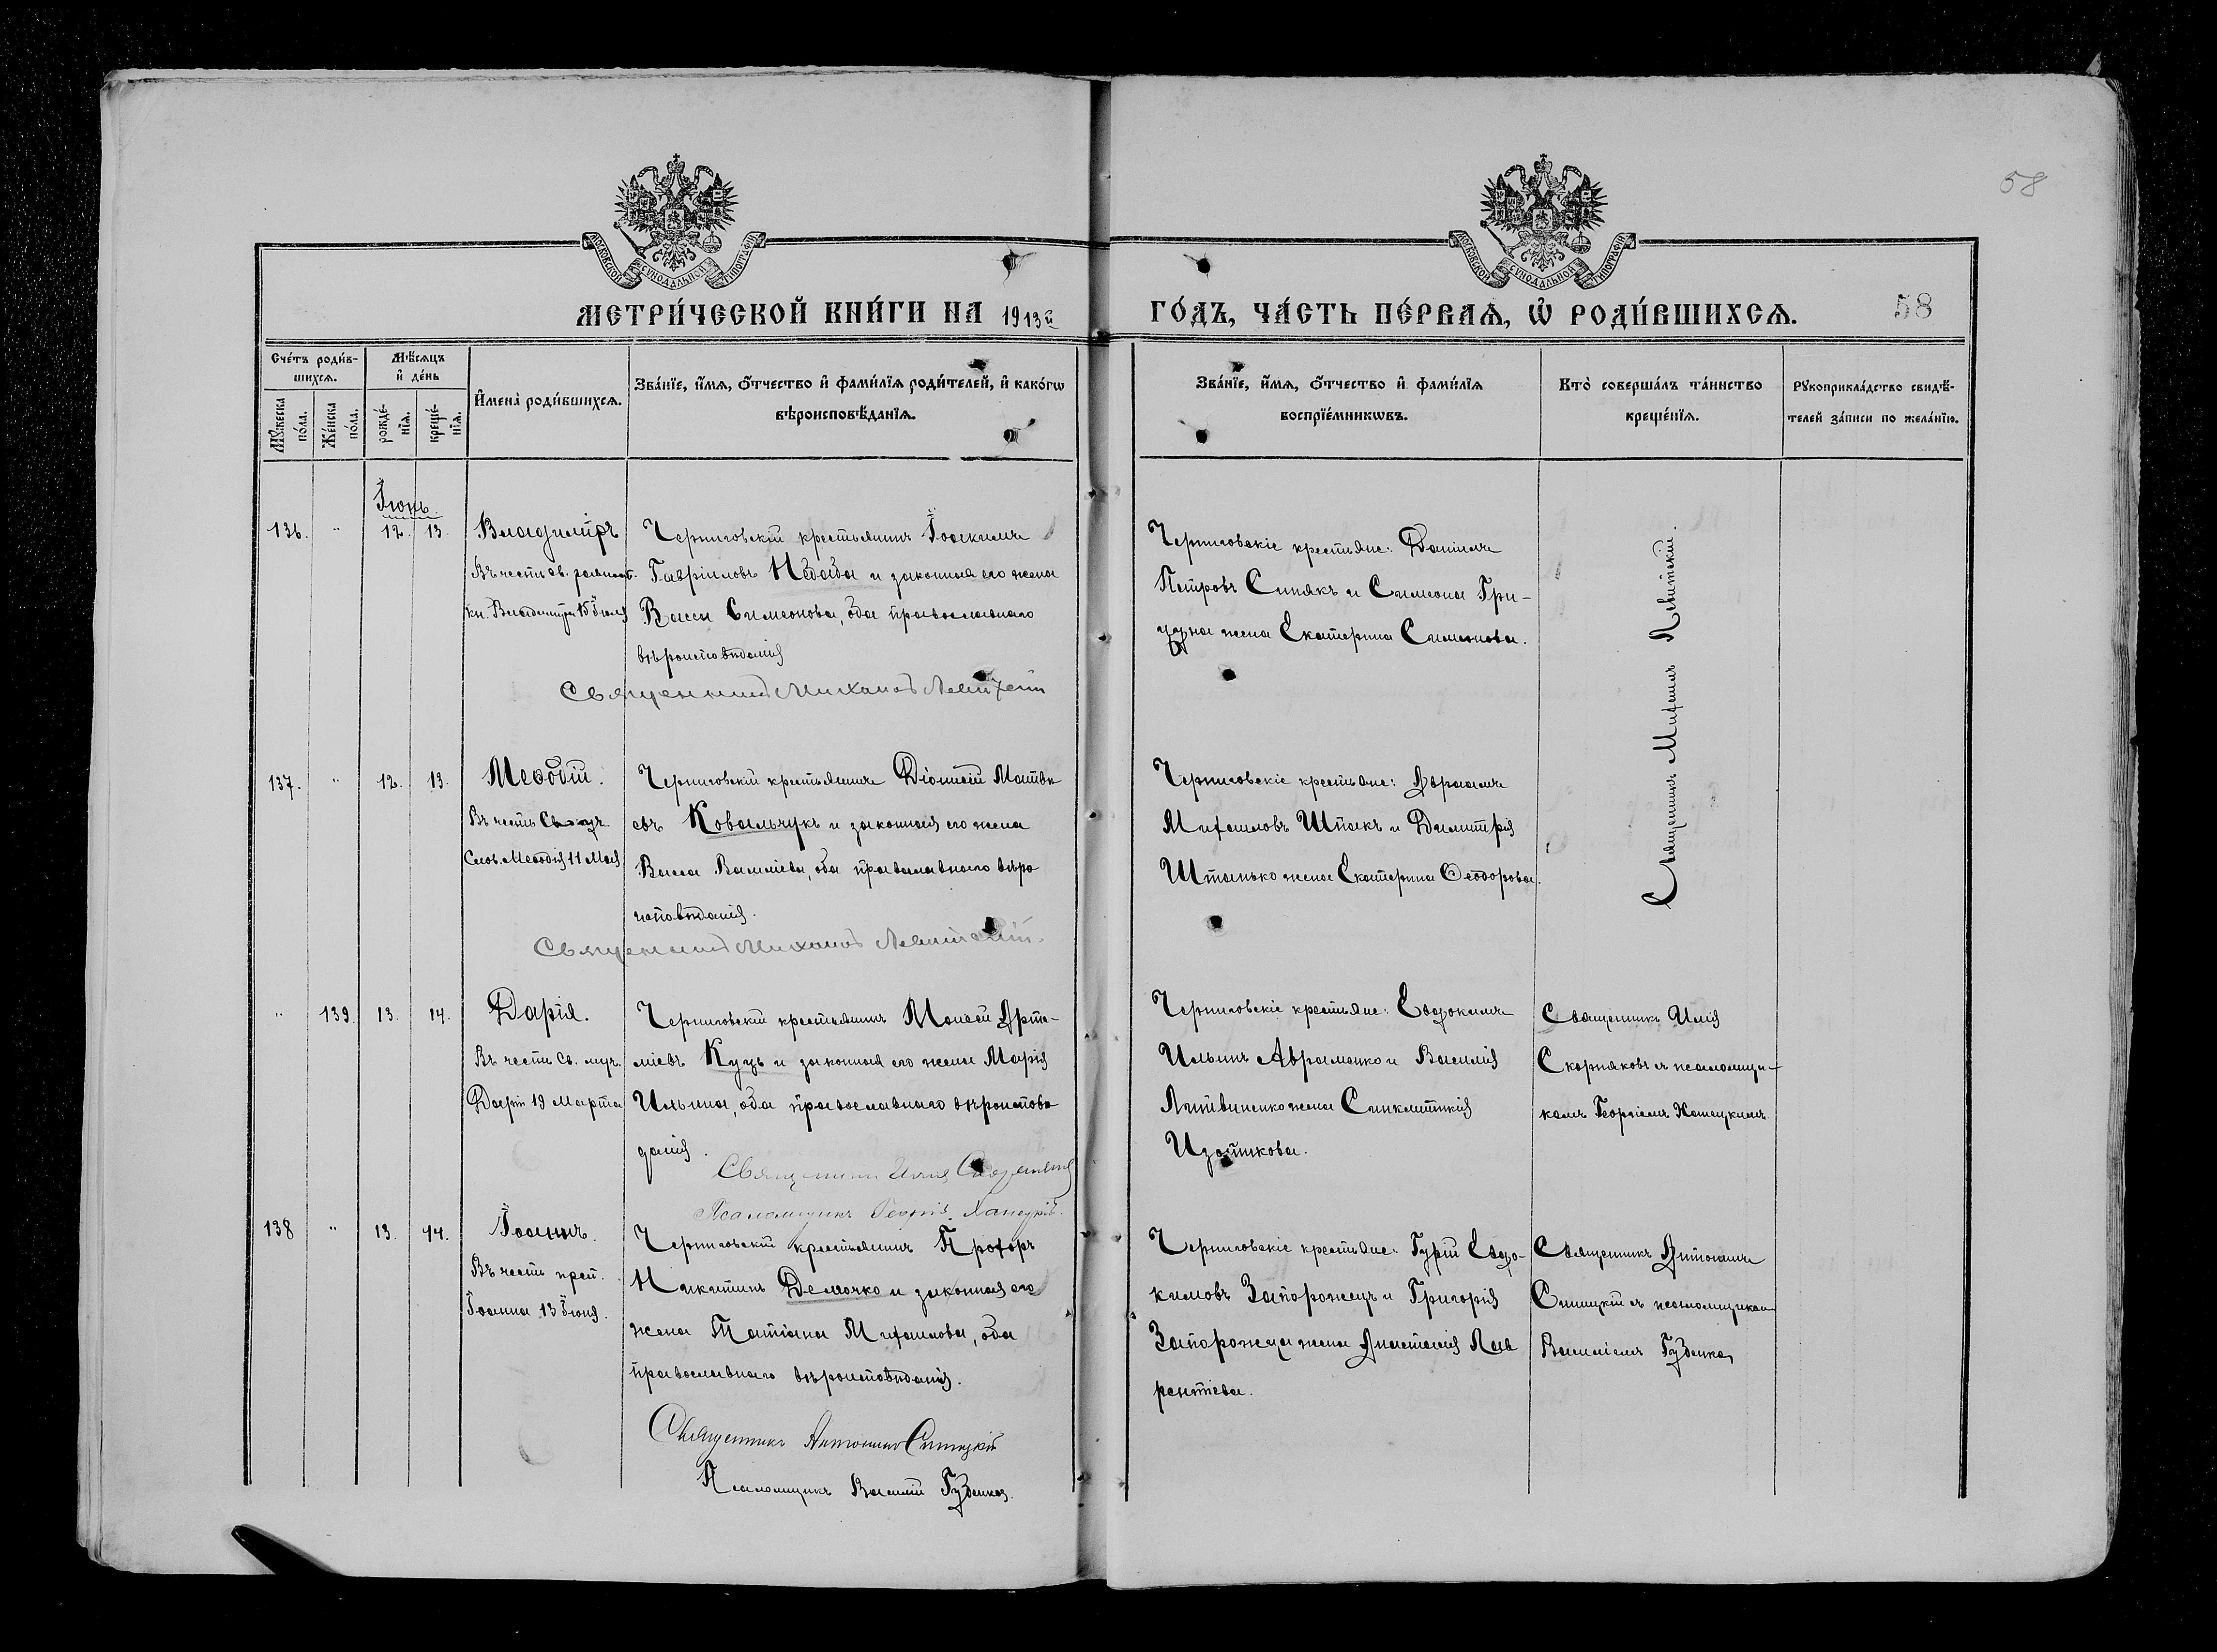 58
МОСКОВСКОЙ СѴНОДАЛЬНОЙ ТИПОГРАФІИ
МОСКОВСКОЙ СѴНОДАЛЬНОЙ ТИПОГРАФІИ
МЕТРИ́ЧЕСКОЙ КНИ́ГИ НА 1913й ГО́ДЪ, ЧА́СТЬ ПЕ́РВАѦ, Ѡ РОДИ́ВШИХСѦ. 58
Сче́тъ роди́в-
шихсѧ.
Мꙋ́жеска
по́ла.
Же́нска
по́ла.
Мѣ́сѧцъ
и҆ де́нь
рожде́-
нїѧ.
креще́-
нїѧ.
И҆мена̀ роди́вшихсѧ.
Зва́нїе, и҆́мѧ, ѻ҆́тчество и҆ фами́лїѧ роди́телей, и҆ како́гѡ
вѣроисповѣ́данїѧ.
Зва́нїе, и҆́мѧ, ѻ҆́тчество и҆ фами́лїѧ
воспрїе́мникѡвъ.
Кто̀ соверша́лъ та́инство
креще́нїѧ.
Рꙋкоприкла́дство свидѣ́-
телей за́писи по жела́нїю.
Іюнь.
136. " 12. 13.
Владиміръ
Въ честь св. равноап.
кн. Владиміра 15 Іюля
Черниговскій крестьянинъ Іоакимъ
Гавріиловъ и законная его жена
Васса Симеонова, оба православнаго
вѣроисповѣданія
Священникъ Михаилъ Левитскій
Черниговскіе крестьяне: Даніилъ
Петровъ Синякъ и Симеона Гри-
жена Екатерина Симеонова.
Священникъ Михаилъ Левитскій.
137. " 12. 13.
Меѳодій.
Въ честь Св.
Слов. Меѳодія 11 Мая
Черниговскій крестьянинъ Діонисій Матвѣ
евъ Ковальчукъ и законная его жена
Васса Василіева, оба православнаго вѣро
исповѣданія.
Священникъ Михаилъ Левитскій.
Черниговскіе крестьяне: Авраамъ
Михаиловъ Шпакъ и Димитрія
Штанько жена Екатерина Ѳеодорова.
" 139. 13. 14.
Дарія.
Въ честь Св. муч.
Даріи 19 Марта
Черниговскій крестьянинъ Моисей Арте-
міевъ Куцъ и законная его жена Марія
Ильина, оба православнаго вѣроисповѣ
данія.
Священникъ Илія Скорняковъ
Псаломщикъ Георгій Ханецкій.
Черниговскіе крестьяне: Евдокимъ
Ильинъ Авраменко и Василія
Литвиненко жена Синклитикія
Изотикова.
Священникъ Илія
Скорняковъ съ псаломщи-
комъ Георгіемъ Ханецкимъ.
138 " 13. 14.
Іоаннъ.
Въ честь преп.
Іоанна 13 Іюня.
Черниговскій крестьянинъ Прохоръ
Никитинъ Демочко и законная его
жена Татіана Михаилова, оба
православнаго вѣроисповѣданія.
Священникъ Антоній Синицкій
Псаломщикъ Василій Губенко.
Черниговскіе крестьяне: Гурій Евдо-
кимовъ Запорожецъ и Григорія
Запорожца жена Анастасія Лав
рентіева.
Священникъ Антоній
Синицкій съ псаломщикомъ
Василіемъ Губенко